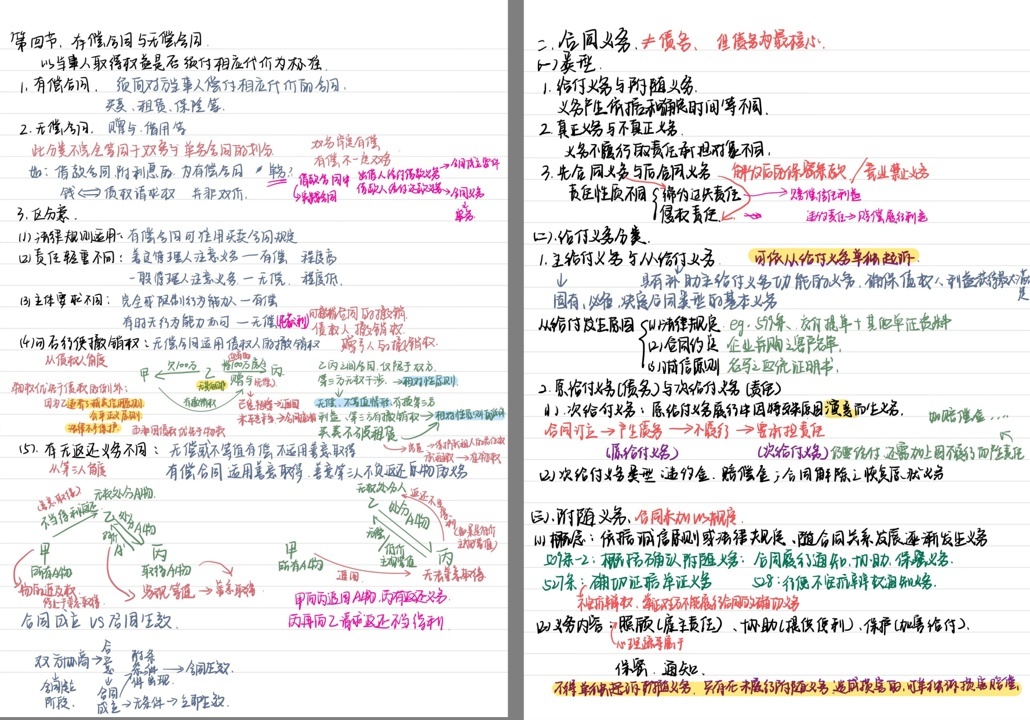 第四节、有偿合同与无偿合同.
以当事人取得权益是否须付相应代价为标准.
1.有偿合同. 须向对方当事人偿付相应代价的合同.
买卖、租赁、保险等.
2.无偿合同. 赠与、借用等
此分类不完全等同于双务与单务合同的划分
双务肯定有偿,
有偿不一定双务
如:借款合同,附利息的为有偿合同,单务?
钱⇔债权请求权 并非双价.
借款合同中
实践合同
出借人给付借款义务→合同成立要件
借款人给付还款义务→合同义务
单务
3.区分意义.
(1)法律规则适用:有偿合同可准用买卖合同规定
(2)责任轻重不同:善良管理人注意义务—有偿 程度高
一般管理人注意义务—无偿. 程度低.
(3)主体要求不同:完全或限制行为能力人—有偿
有的无行为能力亦可—无偿(纯获利)
可撤销合同的撤销.
债权人撤销权
赠与人与撤销权.
(4)可否行使撤销权:无偿合同适用债权人的撤销权
从债权人角度
甲 欠100万 乙 赠与 丙
有撤销权
乙丙之间合同,仅限于双方.
第三方无权干涉.→相对性原则
无偿、不等价情形,有损第三方
利益,第三方有撤销权→相对性原则的例外
买卖不破租赁
(5).有无返还义务不同:无偿或不等值有偿不适用善意取得
从第三人角度
有偿合同适用善意取得,善意第三人不负返还原物的义务
(善意取得) 无权处分A物
不当得利返还 乙 处分A物
甲 对价 A 丙
所有A物 取得A物
物的追及权
终止于善意取得.
客观等值→善意取得
无权处分人
乙 处分A物
返还不当得利
甲
所有A物
无偿 低价
丙
追回 无法善意取得
甲向丙追回A物,丙有返还义务
丙再向乙主张返还不当得利
合同成立 VS 合同生效
双方协商→合意→附条件→条件出现→合同生效
合同磋商阶段. 合同成立→无条件→立即生效
二、合同义务.≠债务, 但债务为最核心.
(一)类型
1.给付义务与附随义务.
义务产生依据和确定时间等不同.
2.真正义务与不真正义务.
义务不履行的责任承担对象不同.
3.先合同义务与后合同义务 解约后的保密条款/竞业禁止义务
责任性质不同 缔约过失责任 → 赔偿信任利益
侵权责任. 违约责任→赔偿履行利益
(二).给付义务分类.
1.主给付义务与从给付义务 可依从给付义务单独起诉
↓ 具有补助主给付义务功能的义务,确保债权人利益获得最大满足
固有、必备,决定合同类型的基本义务
从给付发生原因 (1)法律规定 eg. 599条、交付提单+其他单证资料
(2)合同约定 企业并购之客户名单.
(3)诚信原则 名马之血统证明书.
2.原给付义务(债务)与次给付义务(责任)
(1).次给付义务:原给付义务履行中因特殊原因演变而生义务. 如赔偿金…
合同订立→产生债务→不履行→要求担责任
(原给付义务) (次给付义务)仍要给付,还需加上因不履行的加害责任
(2)次给付义务类型:违约金、赔偿金;合同解除之恢复原状义务
(三).附随义务.合同未加以规定
(1)概念:依据诚信原则或法律规定,随合同关系发展逐渐发生义务
509条-2:概括确认附随义务: 合同履行通知,协助,保密义务.
527条:确切证据举证义务 528:行使不安抗辩权通知义务.
不安抗辩权,举证对方不能履行合同的准确切义务
(2)义务内容:照顾(雇主责任)、协助(提供便利)、保护(加害给付).
心理疏导属于
保密、通知
不得单独起诉附随义务,只有在未履行附随义务造成损害的,可单独诉损害赔偿.